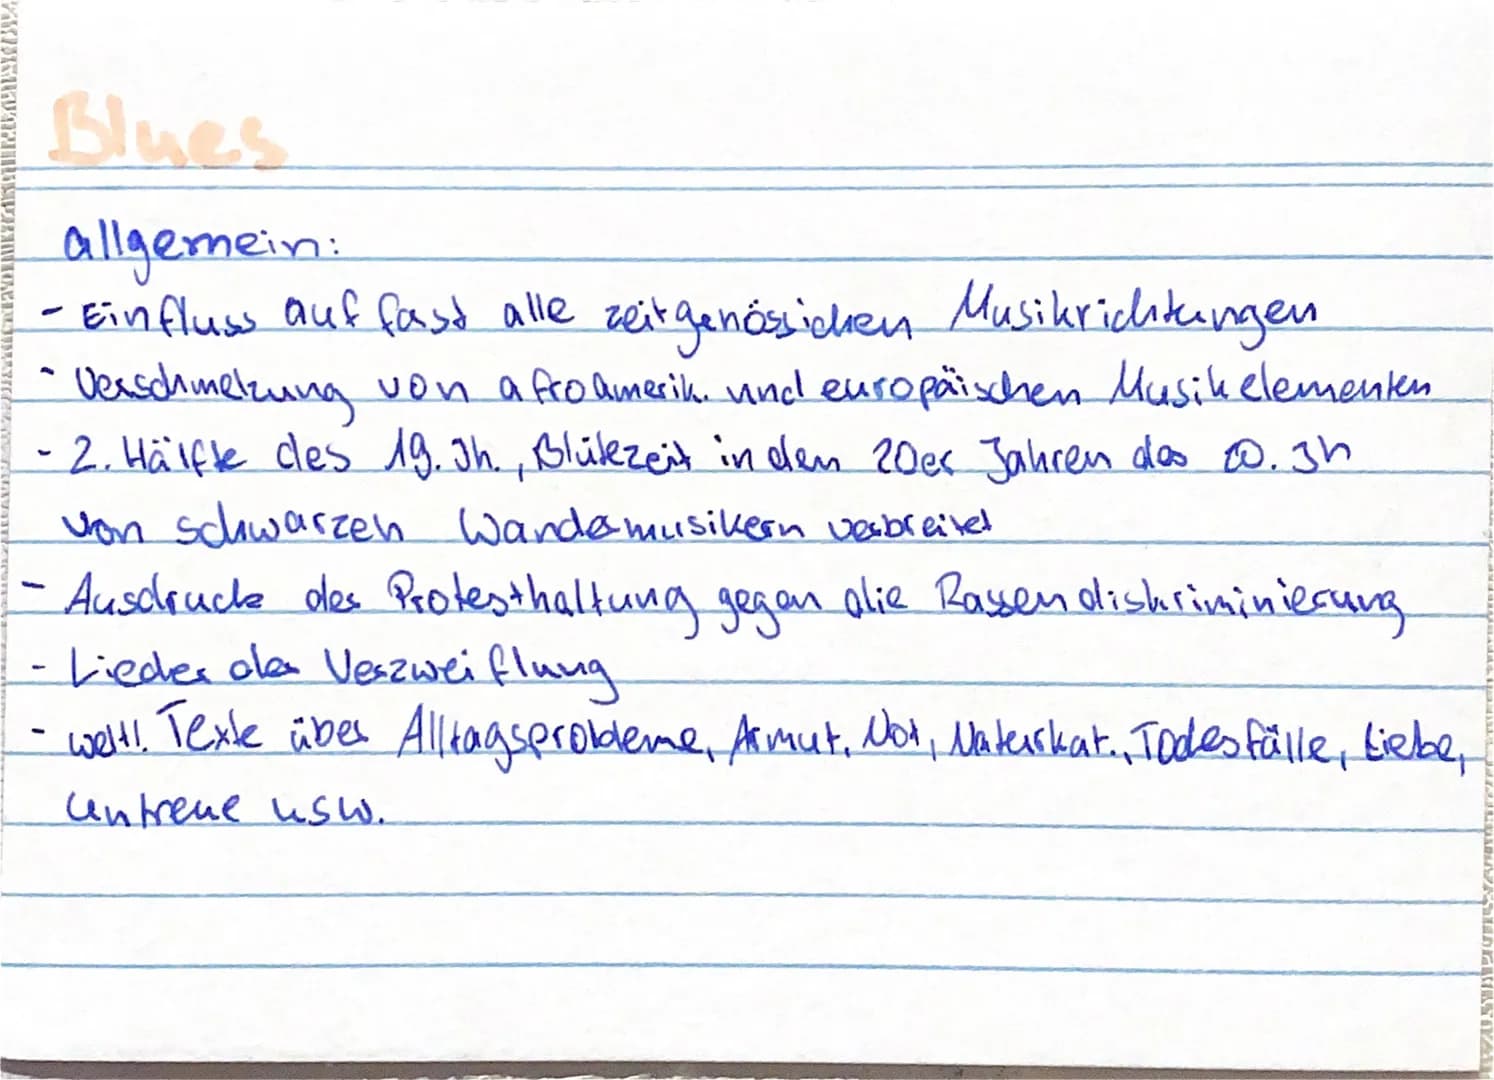 Blues
allgemein:
- Einfluss auf fast alle zeitgenössichen Musikrichtungen
- Verschmelzung von afroamerik. und europäischen Musikelementen
- 2. Hälfte des 19. Jh., Blütezeit in den 20er Jahren des 20. Jh
von schwarzen Wandermusikern verbreitet
- Ausdruck der Protesthaltung gegen die Rassendiskriminierung
- Lieder der Verzweiflung
- weltl. Texte über Alltagsprobleme, Armut, Not, Naturkat., Todesfälle, Liebe,
Untreue usw.